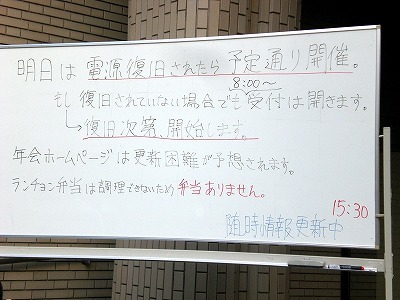 明日は電源復旧されたら予定通り開催。
8:00〜
もし復旧されていない場合でも受付は開きます。
↳復旧次第、開始します。
年会ホームページは更新困難が予想されます。
ランチョン弁当は調理できないため弁当ありません。
15:30
随時情報更新中